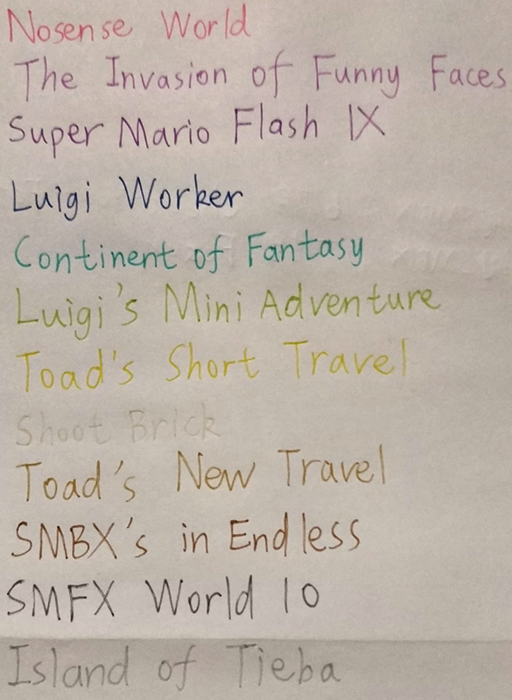 Nosense World
The Invasion of Funny Faces
Super Mario Flash IX
Luigi Worker
Continent of Fantasy
Luigi's Mini Adventure
Toad's Short Travel
Shoot Brick
Toad's New Travel
SMBX's in Endless
SMFX World 10
Island of Tieba